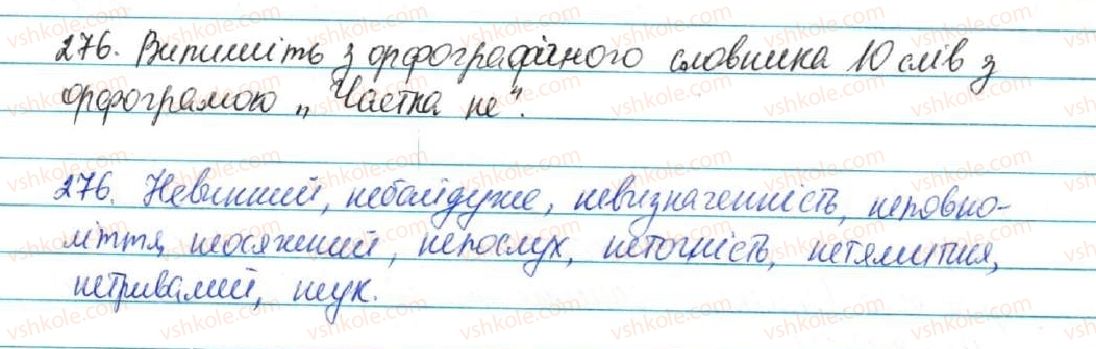 276. Випишіть з орфографічного словника 10 слів з
орфограмою „Частка не".
276. Невинний, небайдуже, невизначенність, неповно-
ліття, неосяжний, непослух, неточність, нетямитися,
нетривалий, неук.